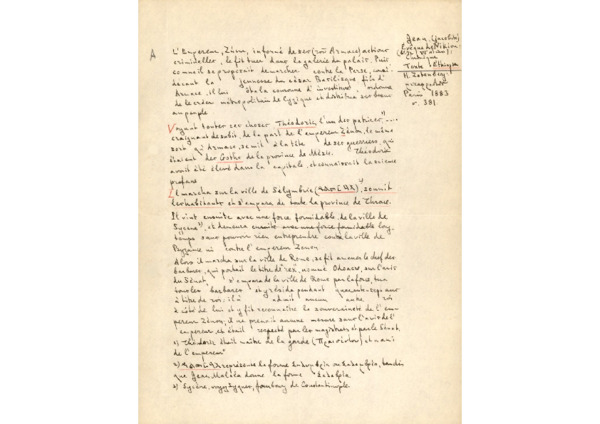 A
L'Empereur, Zénon, informé de ses (son Armace) actions
criminelles, le fit tuer dans la galerie du palais. Puis
comme il se proposait de marcher contre la Perse,
la jeunesse du césar Basilisque fils d'
Armace, il lui ôta la couronne d'investiture ordonna
de le créer métropolitain de Cyzique et distribua ses biens
au peuple
Voyant toutes ces choses Théodoric, l'un des patrices 1)...
craignant de subir, de la part de l'empereur Zénon, le même
sort qu'Armace, se mit à la tête de ses guerriers, qui
étaient des Goths de la province de Mésie. Théodoric
avait été élevé dans la capitale, et connaissait la science
profane
Il marcha sur la ville de Sélymbrie 2), soumit
les habitants et s'empara de toute la province de Thrace.
Il vint ensuite avec une force formidable de la ville de
Sycène 3), et demeura ensuite avec une force formidable long-
temps sans pouvoir rien entreprendre contre la ville de
Byzance ni contre l'empereur Zénon.
Alors il marcha sur la ville de Rome, se fit amener le chef des
barbares, qui portait le titre de "rex", nommé Odoacre, sur l'avis
du Sénat, s'empara de la ville de Rome par la force, tua
tous les barbares et y résida pendant quarante-sept ans
à titre de roi; il n' admit aucun autre roi
à côté de lui et y fit reconnaître la souveraineté de l'em-
pereur Zénon, il ne prenait aucune mesure sans l'avis de l'
empereur et était respecté par les magistrats et par le Sénat.
1) Théodoric était maître de la garde et ami
de l'empereur
2) représente la forme
que Jean Malala donne la forme
3) Sycène, voyez Sycae, faubourg de Constantinople.
Jean, (Jacobite)
Evêque de Nikiou
Chronique
Texte éthiopien
H. Zotenberg
Paris 1883
p. 381